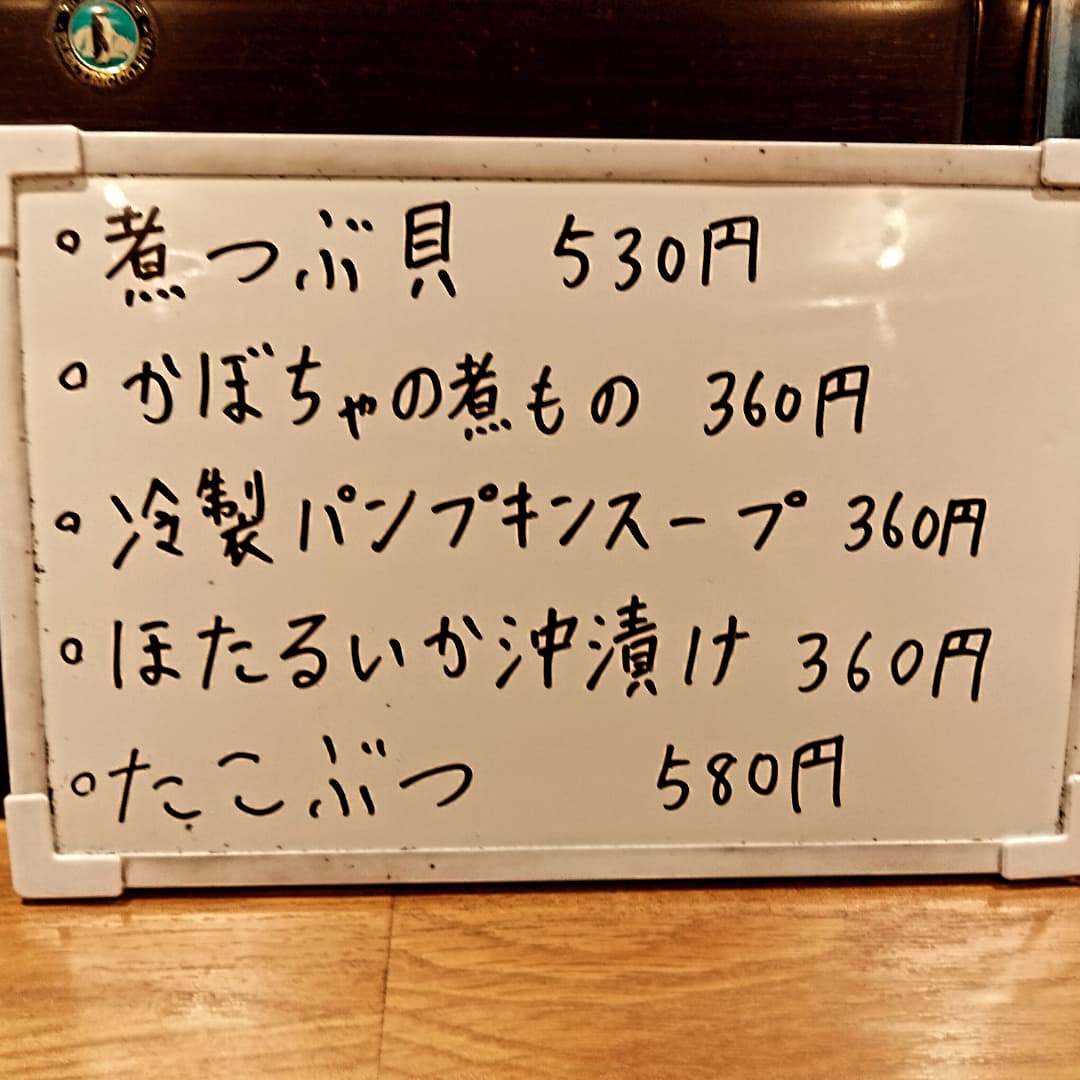 。煮つぶ貝 530円
。かぼちゃの煮もの 360円
。冷製パンプキンスープ 360円
。ほたるいか沖漬け 360円
。たこぶつ 580円